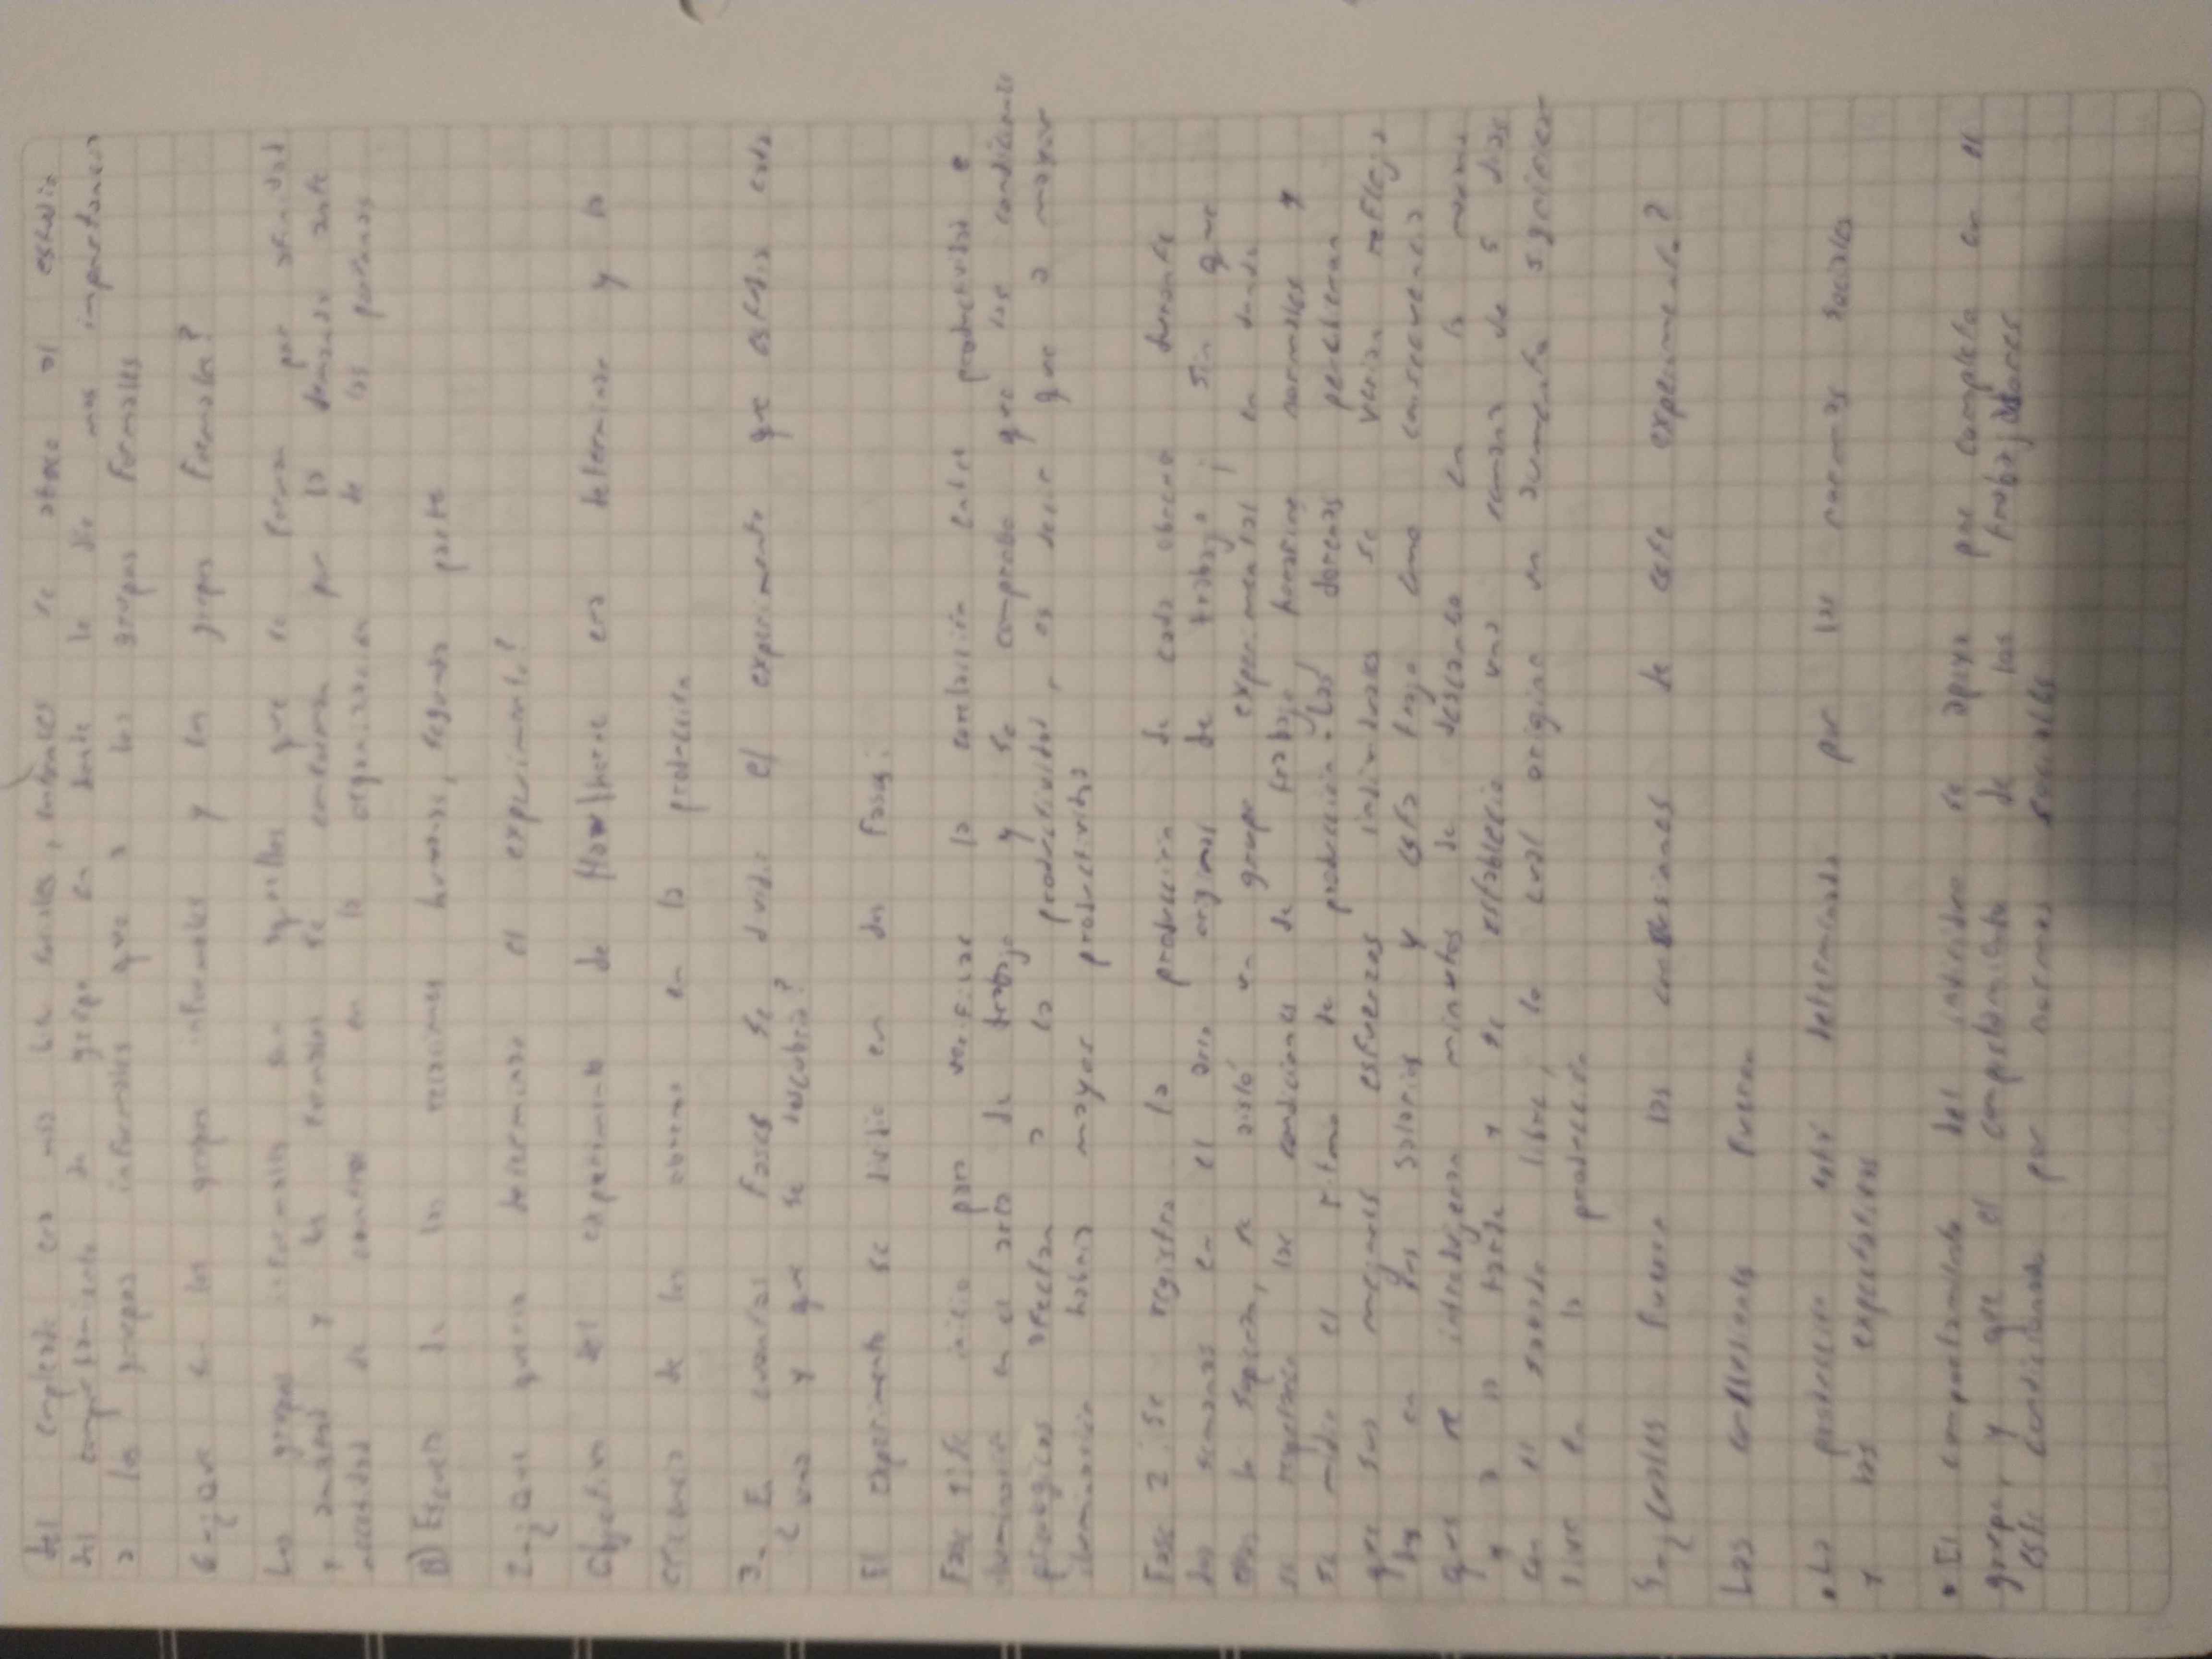 del empleado era mas sociales, entonces se atrae al estudio
del comportamiento de grupo en donde le dio mas importancia
a los grupos informales que a los grupos Formales
6-¿Que son los grupos informales y los grupos Formales?
Los grupos informales son aquellos que se Forman por afinidad
y amistad y los Formales se conforman por la demanda ante
necesidad de en la organizacion de las
B) Escuela de las relaciones humanas, segunda parte
2-¿Que queria determinar el experimento?
Objetivo del experimento de Hawthorne era determinar y la
de los obreros en la produccion
3- E cuantas Fases se dividio el experimento que
una y que se descubrio?
El experimento se dividio en dos Fases:
Fase 1 Se inicio para verificar la correlacion entre productividad e
iluminacion en el area de trabajo y se comprobo que las condiciones
psicologicas afectan a la productividad, es decir que a mayor
iluminacion habria mayor productividad
Fase 2: Se registro la produccion de cada obrero durante
dos semanas en el area original de trabajo sin que
ellas lo supieran, se aisló un grupo experimental, en donde
se las condiciones de trabajo normales y
se midio el ritmo de produccion. Las
que sus mejores esfuerzos individuales se verian reflejo
en sus salarios y esto trajo como consecuencia
que se introdujeran minutos de descanso en la
y a la tarde y se establecio una semana de 5 dias
con el sabado libre, lo cual origino un aumento
en la produccion
4-¿Cuales Fueron las conclusiones de este experimento?
Las conclusiones Fueron
• La produccion está determinada por las normas sociales
y las expectativas
• El comportamiento del individuo se apoya por completo en el
grupo y que el comportamiento de los trabajadores
está condicionado por normas sociales